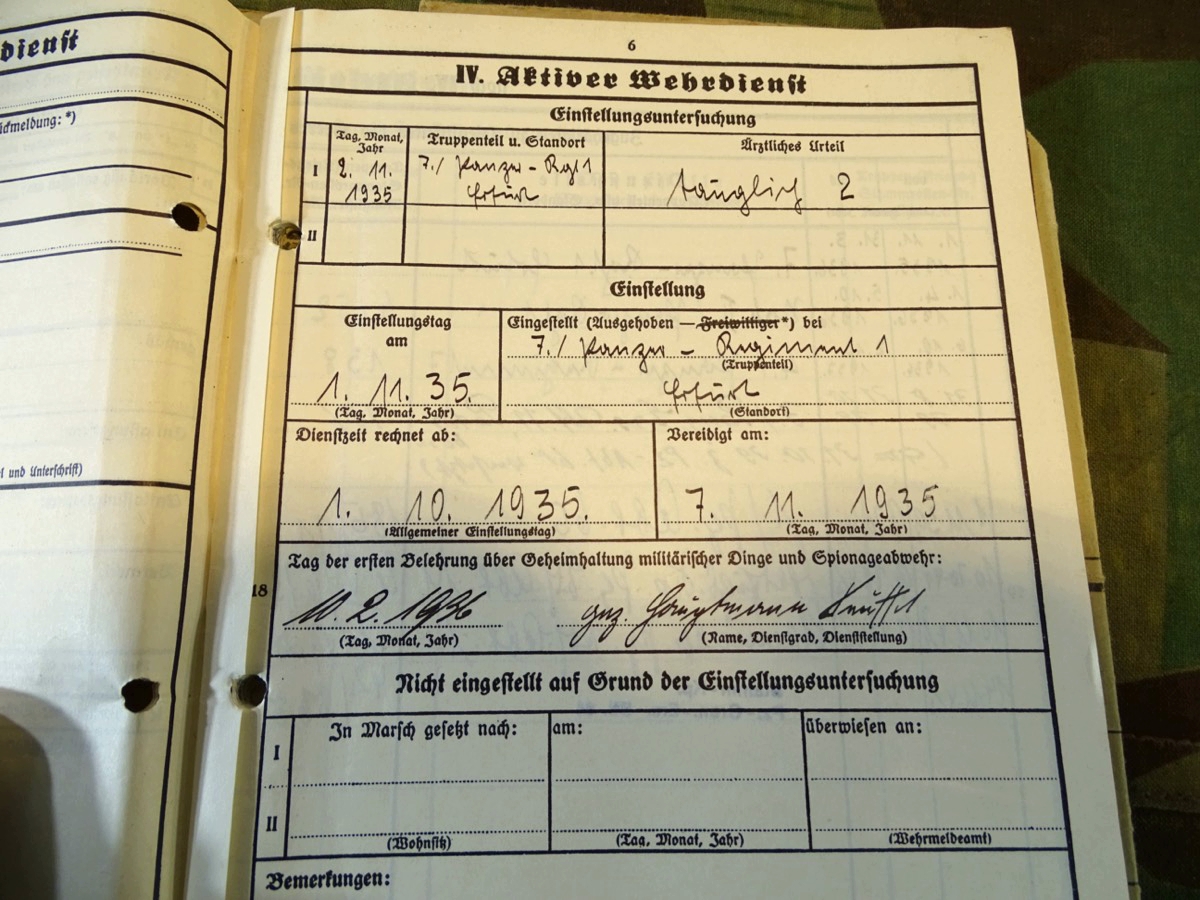 dienst
ückmeldung: *)
el und Unterschrift)
6
IV. Aktiver Wehrdienst
Einstellungsuntersuchung
Tag, Monat, Jahr
Truppenteil u. Standort
Ärztliches Urteil
I
2. 11.
1935
7./ Panzer - Rgt 1
Erfurt
tauglich 2
II
Einstellung
Einstellungstag
am
1. 11. 35.
(Tag, Monat, Jahr)
Eingestellt (Ausgehoben — Freiwilliger*) bei
7./ Panzer - Regiment 1
(Truppenteil)
Erfurt
(Standort)
Dienstzeit rechnet ab:
1. 10. 1935.
(Allgemeiner Einstellungstag)
Vereidigt am:
7. 11. 1935
(Tag, Monat, Jahr)
18
Tag der ersten Belehrung über Geheimhaltung militärischer Dinge und Spionageabwehr:
10. 2. 1936
gez. Hauptmann
(Tag, Monat, Jahr)
(Name, Dienstgrad, Dienststellung)
Nicht eingestellt auf Grund der Einstellungsuntersuchung
In Marsch gesetzt nach:
am:
überwiesen an:
I
II
(Wohnsitz)
(Tag, Monat, Jahr)
(Wehrmeldeamt)
Bemerkungen: